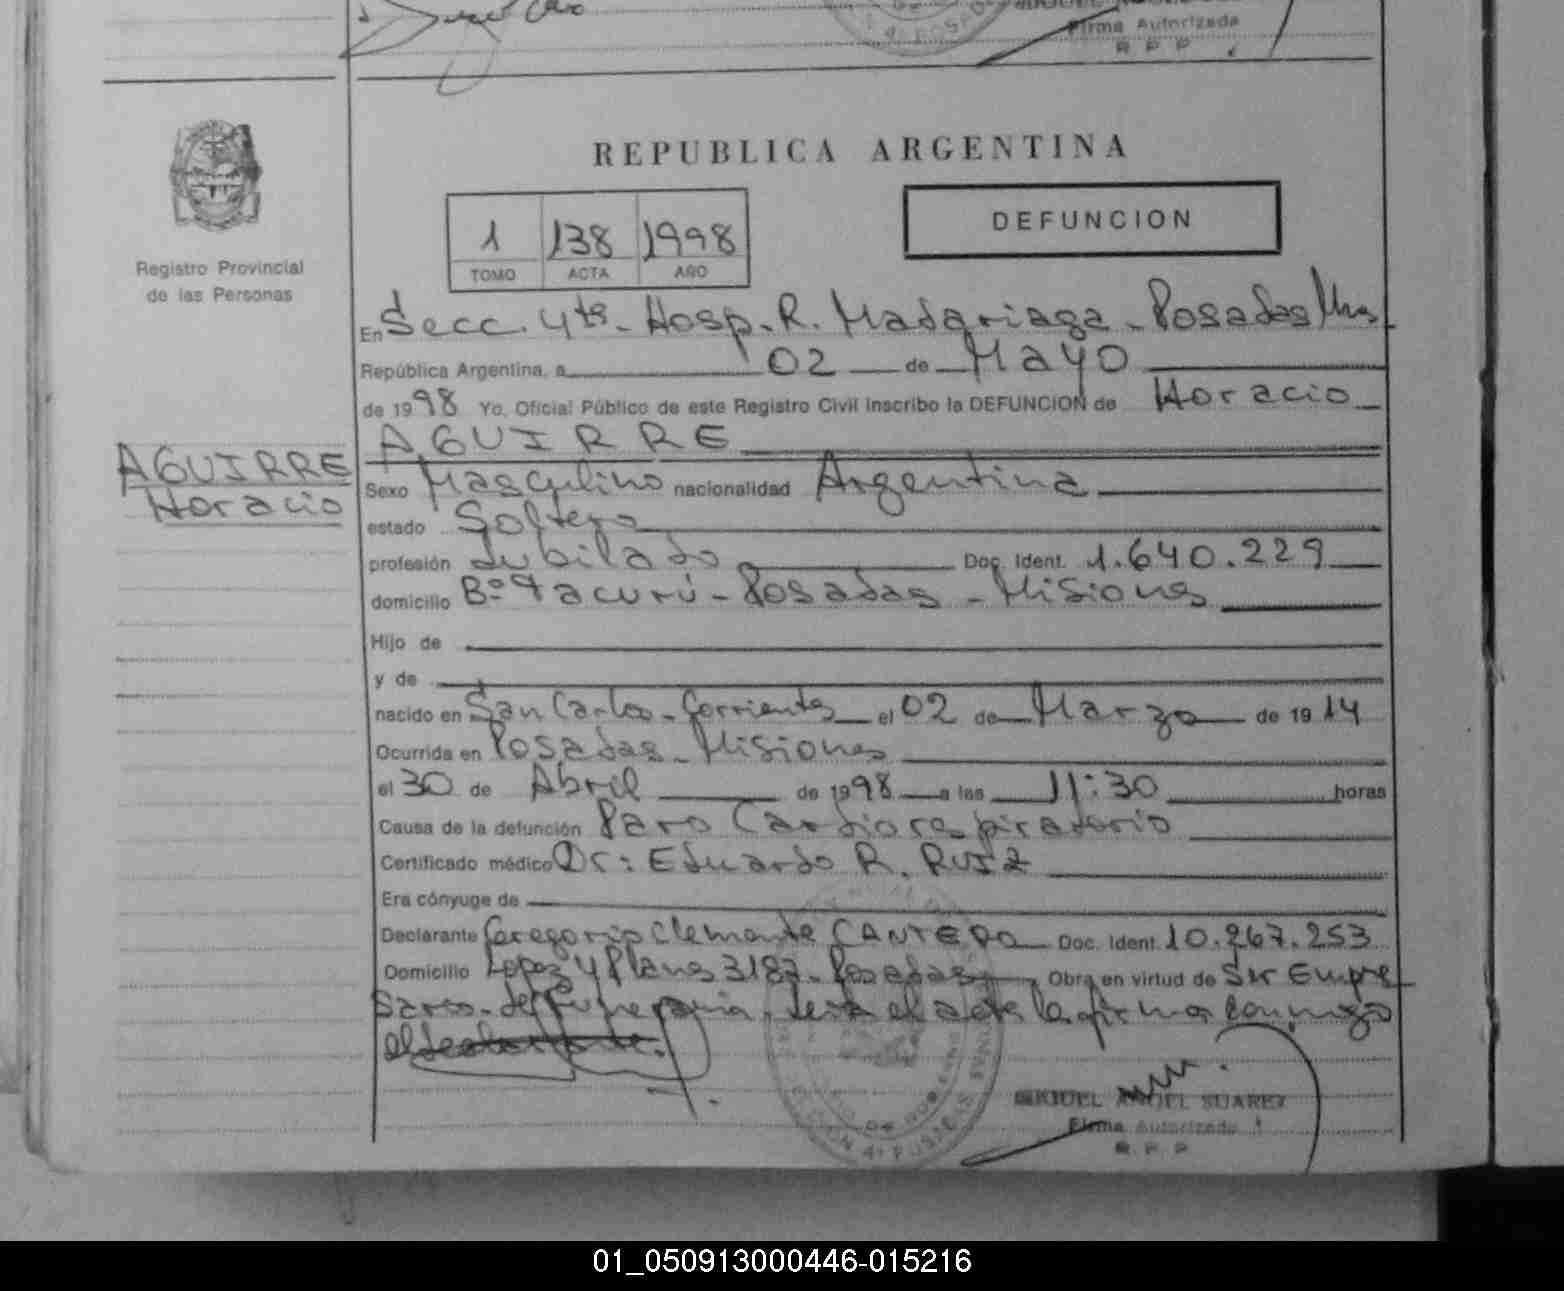 Firma Autorizada
R. P. P.
REPUBLICA ARGENTINA
1 138 1998
TOMO ACTA AÑO
DEFUNCION
Registro Provincial
de las Personas
En Secc. 4ta. Hosp. R. Madariaga - Posadas Mnes
República Argentina, a 02 de Mayo
de 1998 Yo, Oficial Público de este Registro Civil Inscribo la DEFUNCION de Horacio
AGUIRRE
AGUIRRE
Horacio
Sexo Masculino nacionalidad Argentina
estado Soltero
profesión Jubilado Doc. Ident. 1.640.229
domicilio Bº Yacurú - Posadas - Misiones
Hijo de
y de
nacido en San Carlos - Corrientes el 02 de Marzo de 1914
Ocurrida en Posadas - Misiones
el 30 de Abril de 1998 a las 11:30 horas
Causa de la defunción Paro Cardiorespiratorio
Certificado médico Dr: Eduardo R. RUIZ
Era cónyuge de
Declarante Geregorio Clemente CANTERO Doc. Ident. 10.267.253
Domicilio Lopez y Planes 3187 - Posadas Obra en virtud de Ser Empre
sario - de Funeraria. Leida el acta la firma conmigo
el declarante.
MIGUEL ANGEL SUAREZ
Firma Autorizada
R. P. P.
01_050913000446-015216